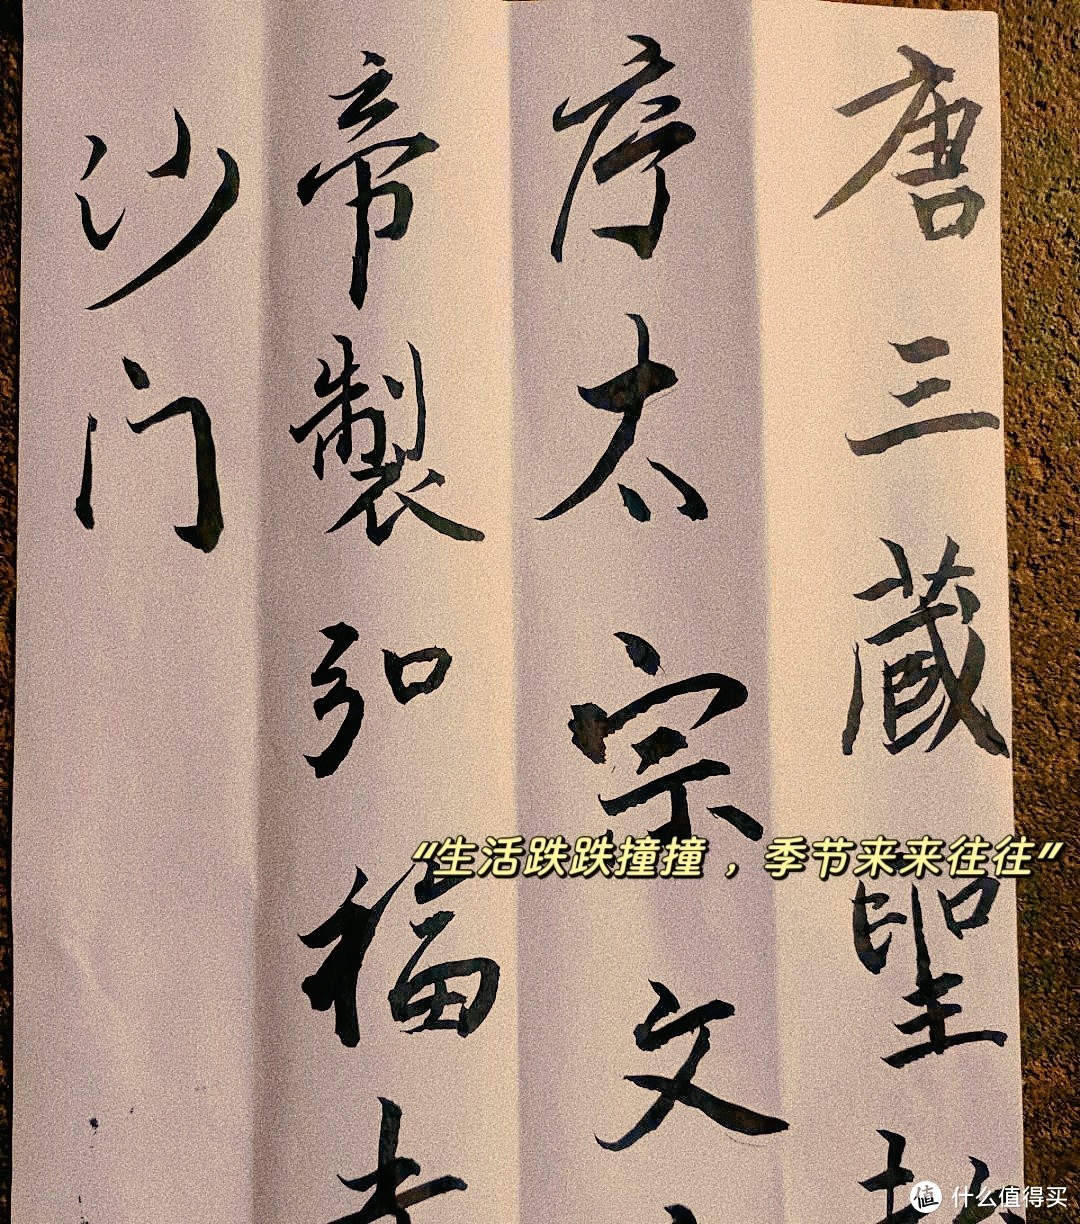 唐三藏聖
序太宗文
帝製弘福
沙门
“生活跌跌撞撞，季节来来往往”
值 什么值得买